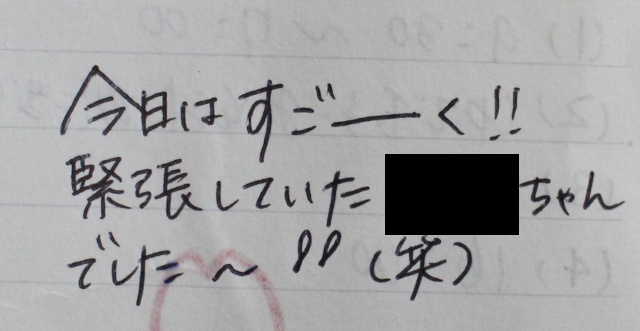 今日はすごーく!!
緊張していた ちゃん
でした～!!(笑)